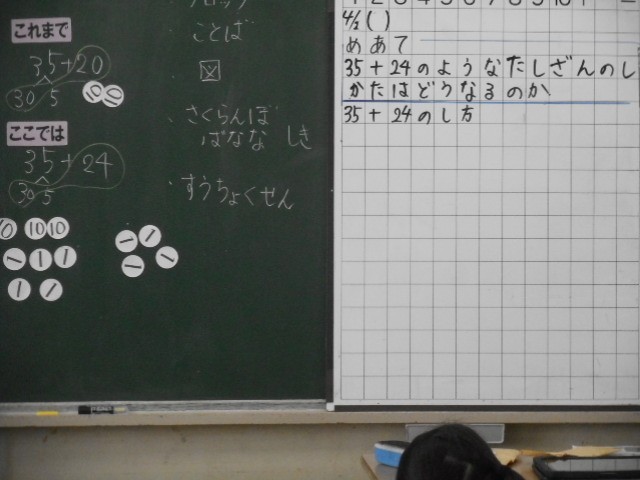 これまで
35+20
30 5
10 10
ここでは
35+24
30 5
10 10 10
1 1 1
1 1
1 1
1 1
・ブロック
・ことば
・図
・さくらんぼ
ばなな しき
・すうちょくせん
4/2( )
めあて
35+24のようなたしざんのし
かたはどうなるのか
35+24のし方